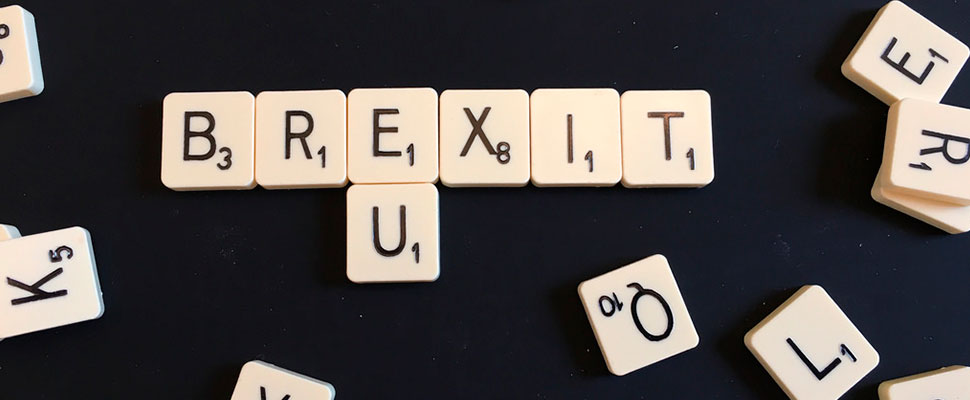 E1
R1
B3 R1 E1 X8 I1 T1
U1
K5
Q10
L1